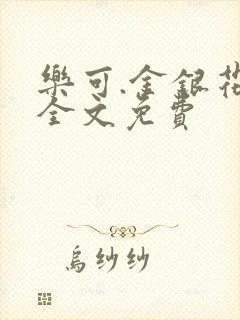 樂可.金銀花
全文免費
烏紗紗